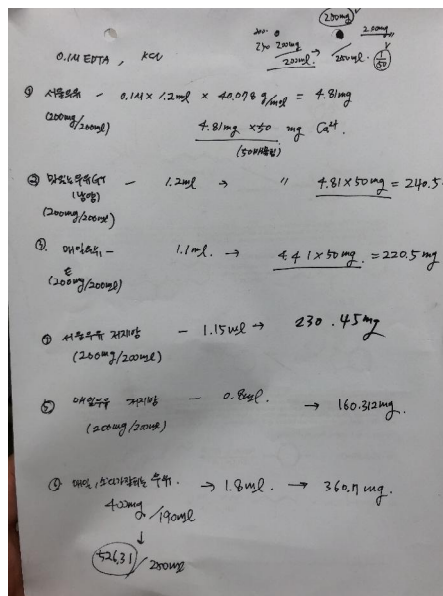 200mg
200mg
200mg
200ml → 250ml. 1/50
0.1M EDTA, KCN
① 서울우유 - 0.1M × 1.2ml × 40.078 g/mol = 4.81mg
(200mg/200ml) 4.81mg ×50 mg Ca²⁺.
(50배희석)
② 맛있는우유GT - 1.2ml → 〃 4.81×50mg = 240.5
(남양)
(200mg/200ml)
③. 매일우유 - 1.1ml. → 4.41×50mg. = 220.5mg
(200mg/200ml)
④ 서울우유 저지방 - 1.15ml → 230.45mg
(200mg/200ml)
⑤ 매일우유 저지방 - 0.8ml. → 160.312mg.
(200mg/200ml)
⑥ 매일, 소화가잘되는 우유. → 1.8ml. → 360.7mg.
/190ml
↓
526.31/200ml